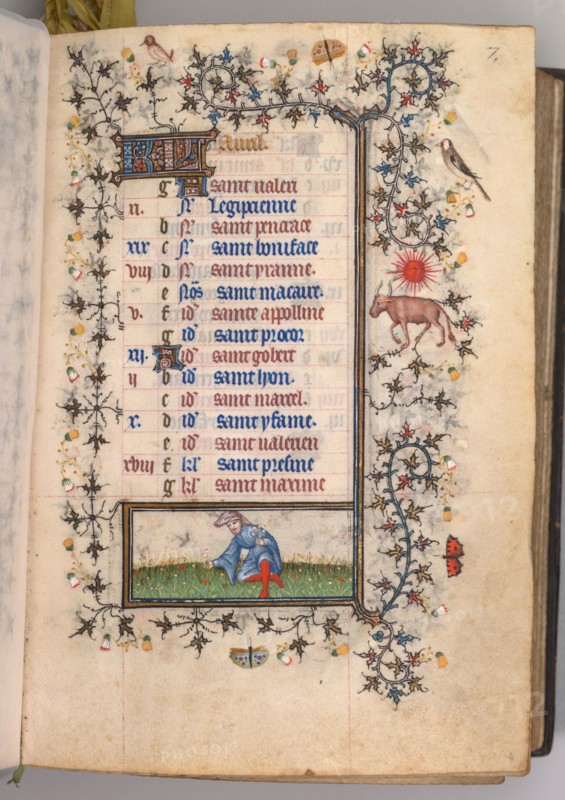 7
KL Auril.
g A saint ualeri
xi. Nᵒ Legipcienne
b Nᵒ saint pencrace
xix c Nᵒ saint boniface
viii d Nᵒ saint tyranne.
e Noñs saint macaire.
v. f id' sainte appolline
g id' saint procor
xii. A id' saint gobert
ii b id' saint lyon.
c id' saint marcel.
x. d id' saint ysame.
e. id' saint ualerien
xviii f kl' saint presine
g kl' saint maxime